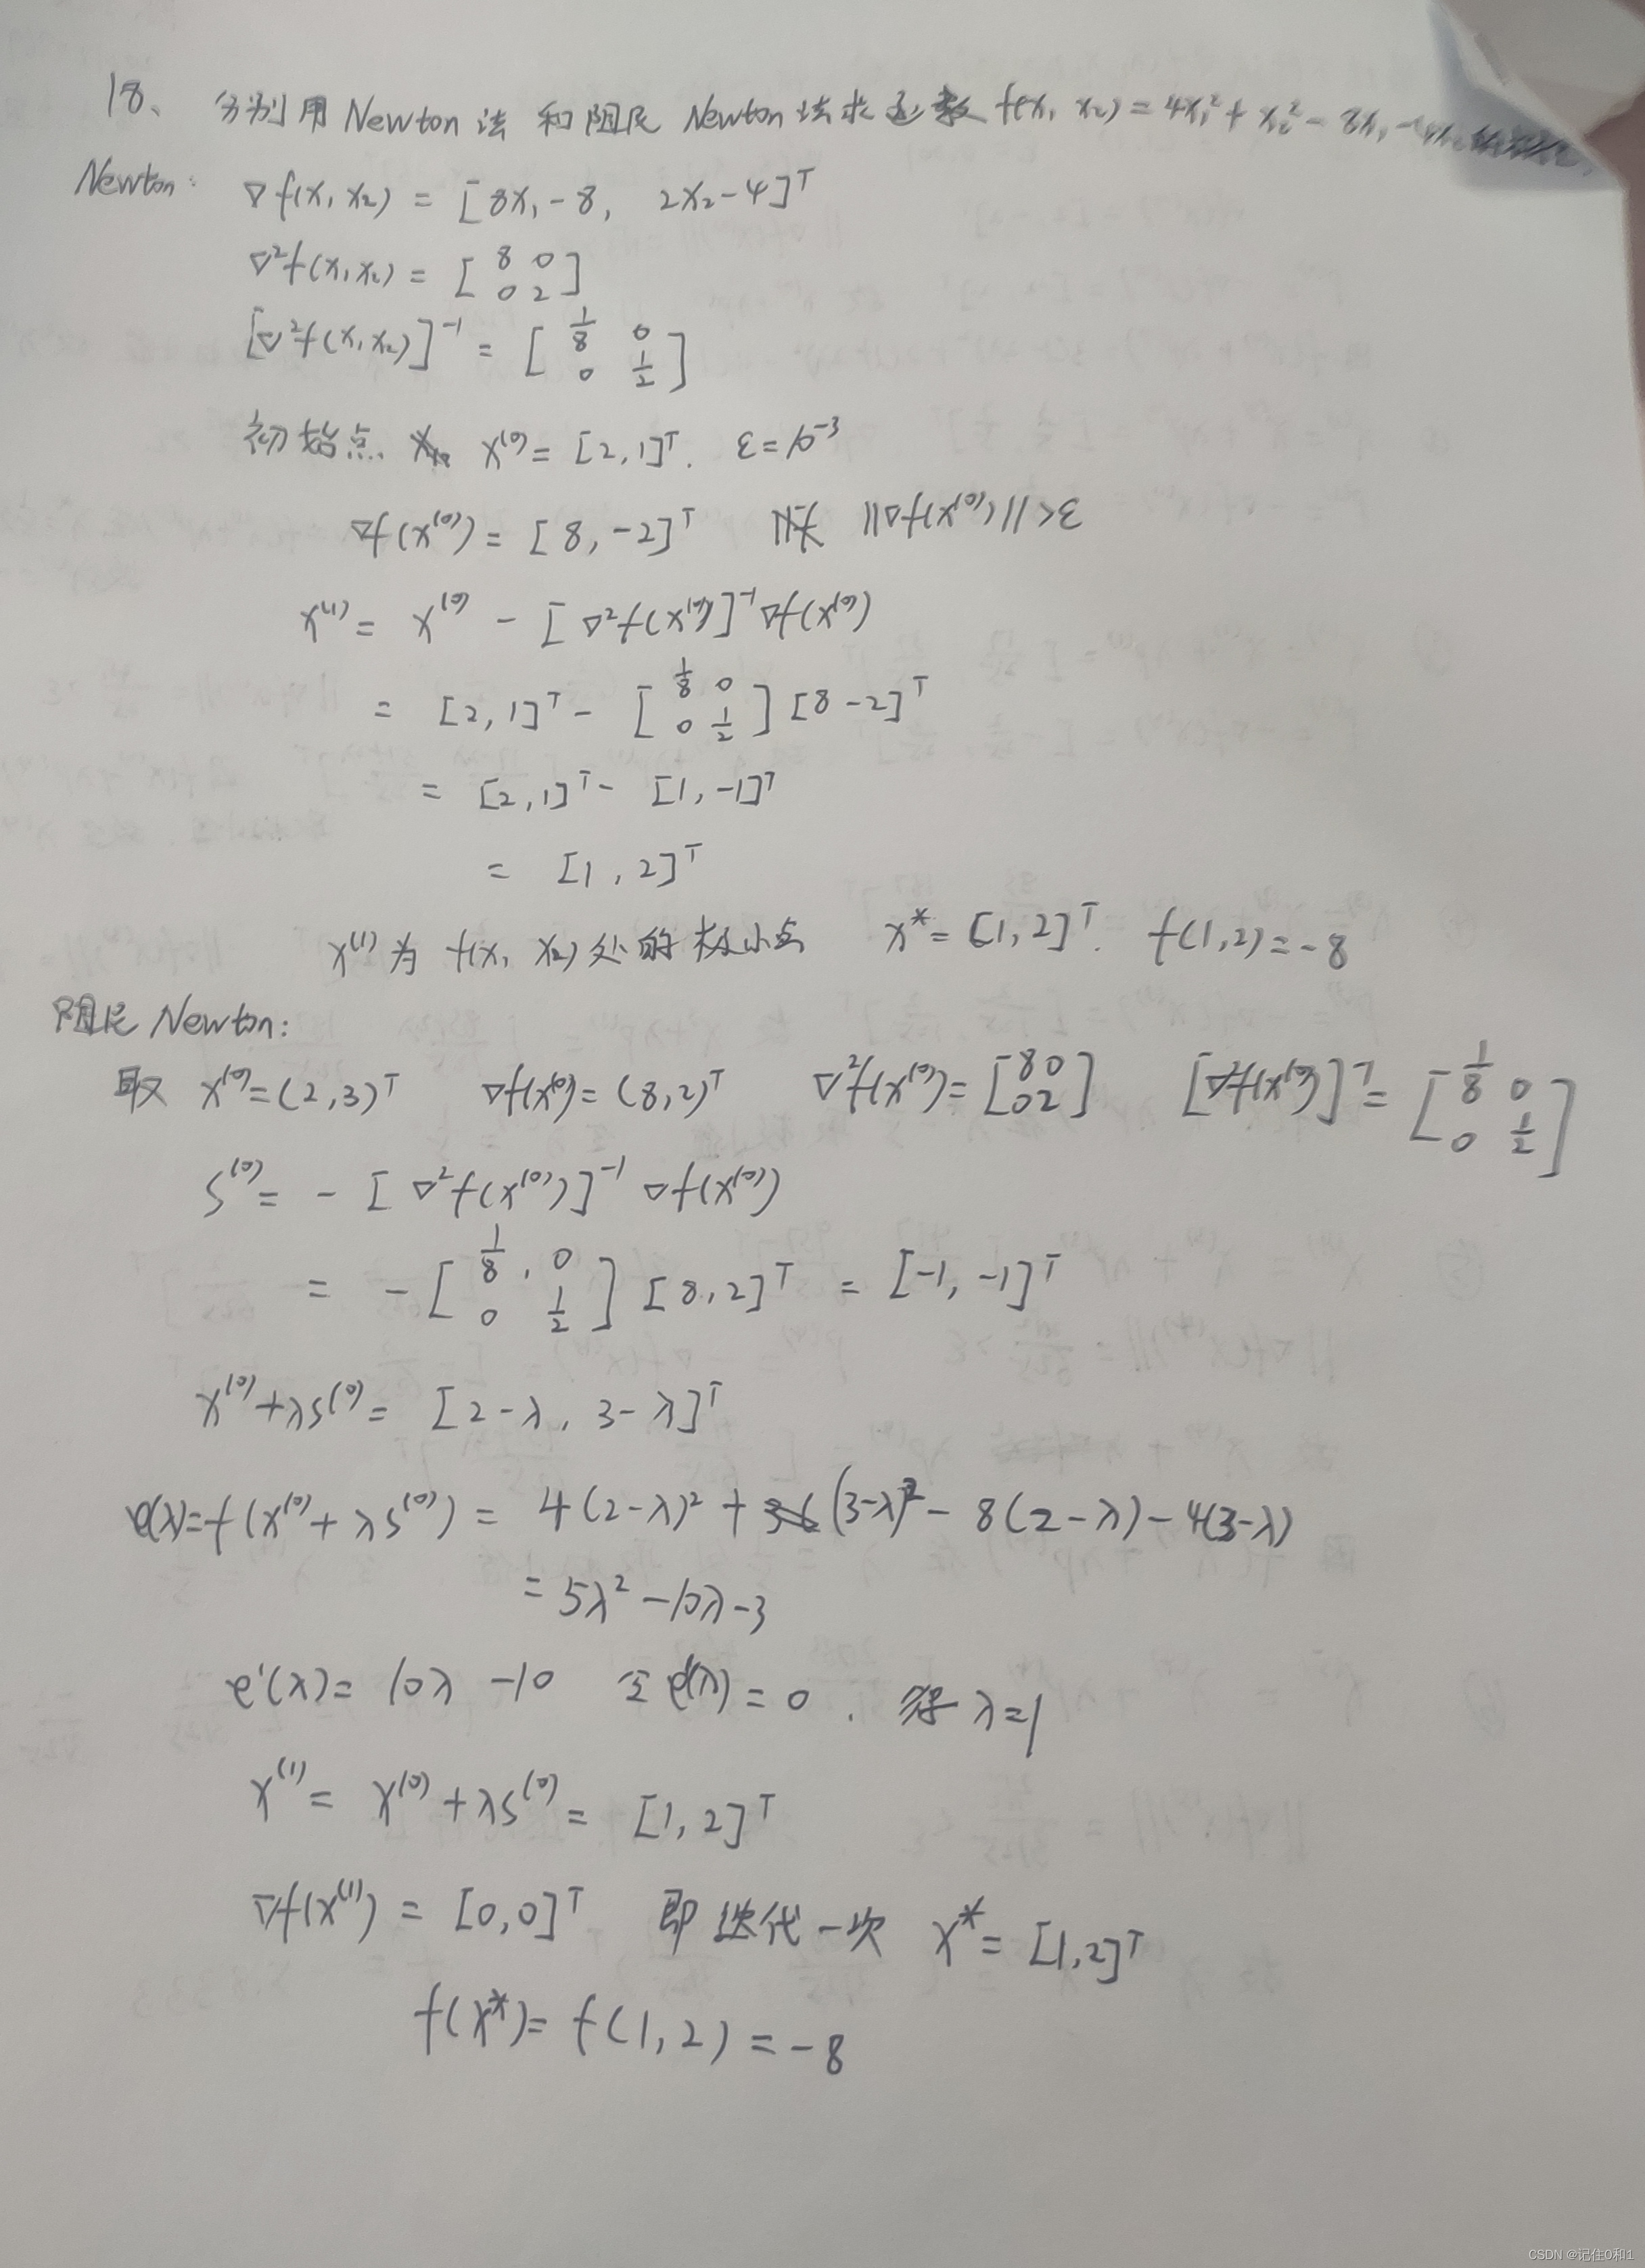 18、 分别用 Newton 法 和 阻尼 Newton 法求函数 f(x₁ x₂) = 4x₁² + x₂² - 8x₁ - 4x₂
Newton: ∇f(x₁ x₂) = [8x₁-8, 2x₂-4]ᵀ
∇²f(x₁ x₂) = [8 0; 0 2]
[∇²f(x₁ x₂)]⁻¹ = [1/8 0; 0 1/2]
初始点 x⁽⁰⁾ = [2, 1]ᵀ. ε=10⁻³
∇f(x⁽⁰⁾) = [8, -2]ᵀ ||∇f(x⁽⁰⁾)|| > ε
x⁽¹⁾ = x⁽⁰⁾ - [∇²f(x⁽⁰⁾)]⁻¹ ∇f(x⁽⁰⁾)
= [2, 1]ᵀ - [1/8 0; 0 1/2] [8 -2]ᵀ
= [2, 1]ᵀ - [1, -1]ᵀ
= [1, 2]ᵀ
x⁽¹⁾ 为 f(x₁ x₂) 处的极小点 x* = [1, 2]ᵀ. f(1, 2) = -8
阻尼 Newton:
取 x⁽⁰⁾ = (2, 3)ᵀ ∇f(x⁽⁰⁾) = (8, 2)ᵀ ∇²f(x⁽⁰⁾) = [8 0; 0 2] [∇f(x⁽⁰⁾)]⁻¹ = [1/8 0; 0 1/2]
S⁽⁰⁾ = - [∇²f(x⁽⁰⁾)]⁻¹ ∇f(x⁽⁰⁾)
= - [1/8, 0; 0 1/2] [8, 2]ᵀ = [-1, -1]ᵀ
x⁽⁰⁾ + λS⁽⁰⁾ = [2-λ, 3-λ]ᵀ
φ(λ) = f(x⁽⁰⁾ + λS⁽⁰⁾) = 4(2-λ)² + (3-λ)² - 8(2-λ) - 4(3-λ)
= 5λ² - 10λ - 3
φ'(λ) = 10λ - 10 令 φ'(λ) = 0. 得 λ=1
x⁽¹⁾ = x⁽⁰⁾ + λS⁽⁰⁾ = [1, 2]ᵀ
∇f(x⁽¹⁾) = [0, 0]ᵀ 即 迭代一次 x* = [1, 2]ᵀ
f(x*) = f(1, 2) = -8
CSDN @记住0和1